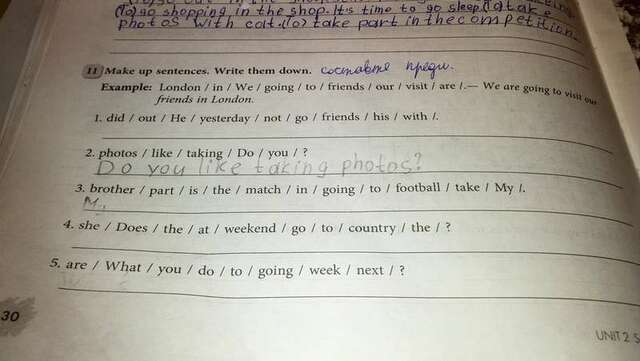 (to) go shopping in the shop. It's time to go sleep. (to) take
photos with cat. (to) take part in the competition.
11 Make up sentences. Write them down. составте предл.
Example: London / in / We / going / to / friends / our / visit / are /. — We are going to visit our
friends in London.
1. did / out / He / yesterday / not / go / friends / his / with /.
2. photos / like / taking / Do / you / ?
Do you like taking photos?
3. brother / part / is / the / match / in / going / to / football / take / My /.
My
4. she / Does / the / at / weekend / go / to / country / the / ?
5. are / What / you / do / to / going / week / next / ?
30
UNIT 2